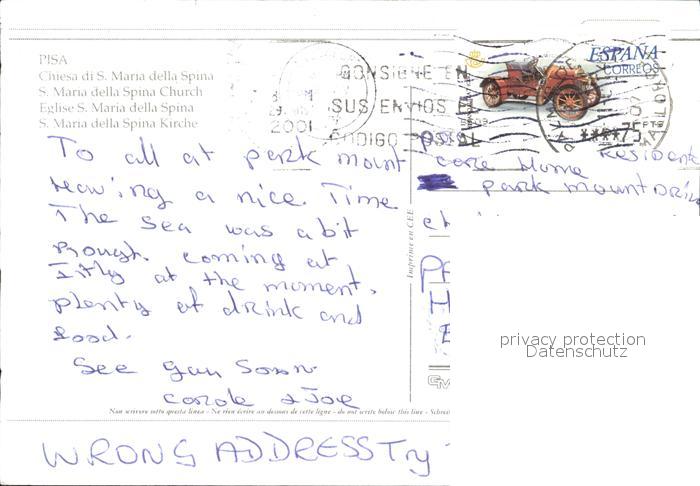 PISA
Chiesa di S. Maria della Spina
S. Maria della Spina Church
Eglise S. Maria della Spina
S. Maria della Spina Kirche
CONSIGNE EN
SUS ENVIOS EL
CODIGO POSTAL
2001
ESPAÑA
CORREOS
****75 PTS
To all at park mount
Haw'ing a nice. Time
The sea was a bit
Rrough. coming at
Itly at the moment.
plenty of drink and
Food.
See you Soon.
Carole & Joe
care Home Residents
park mount Drive
Imprimé en CEE
Non scrivere sotto questa linea - Ne rien écrire au dessous de cette ligne - do not write below this line - Schrei
WRONG ADDRESS Try
privacy protection
Datenschutz